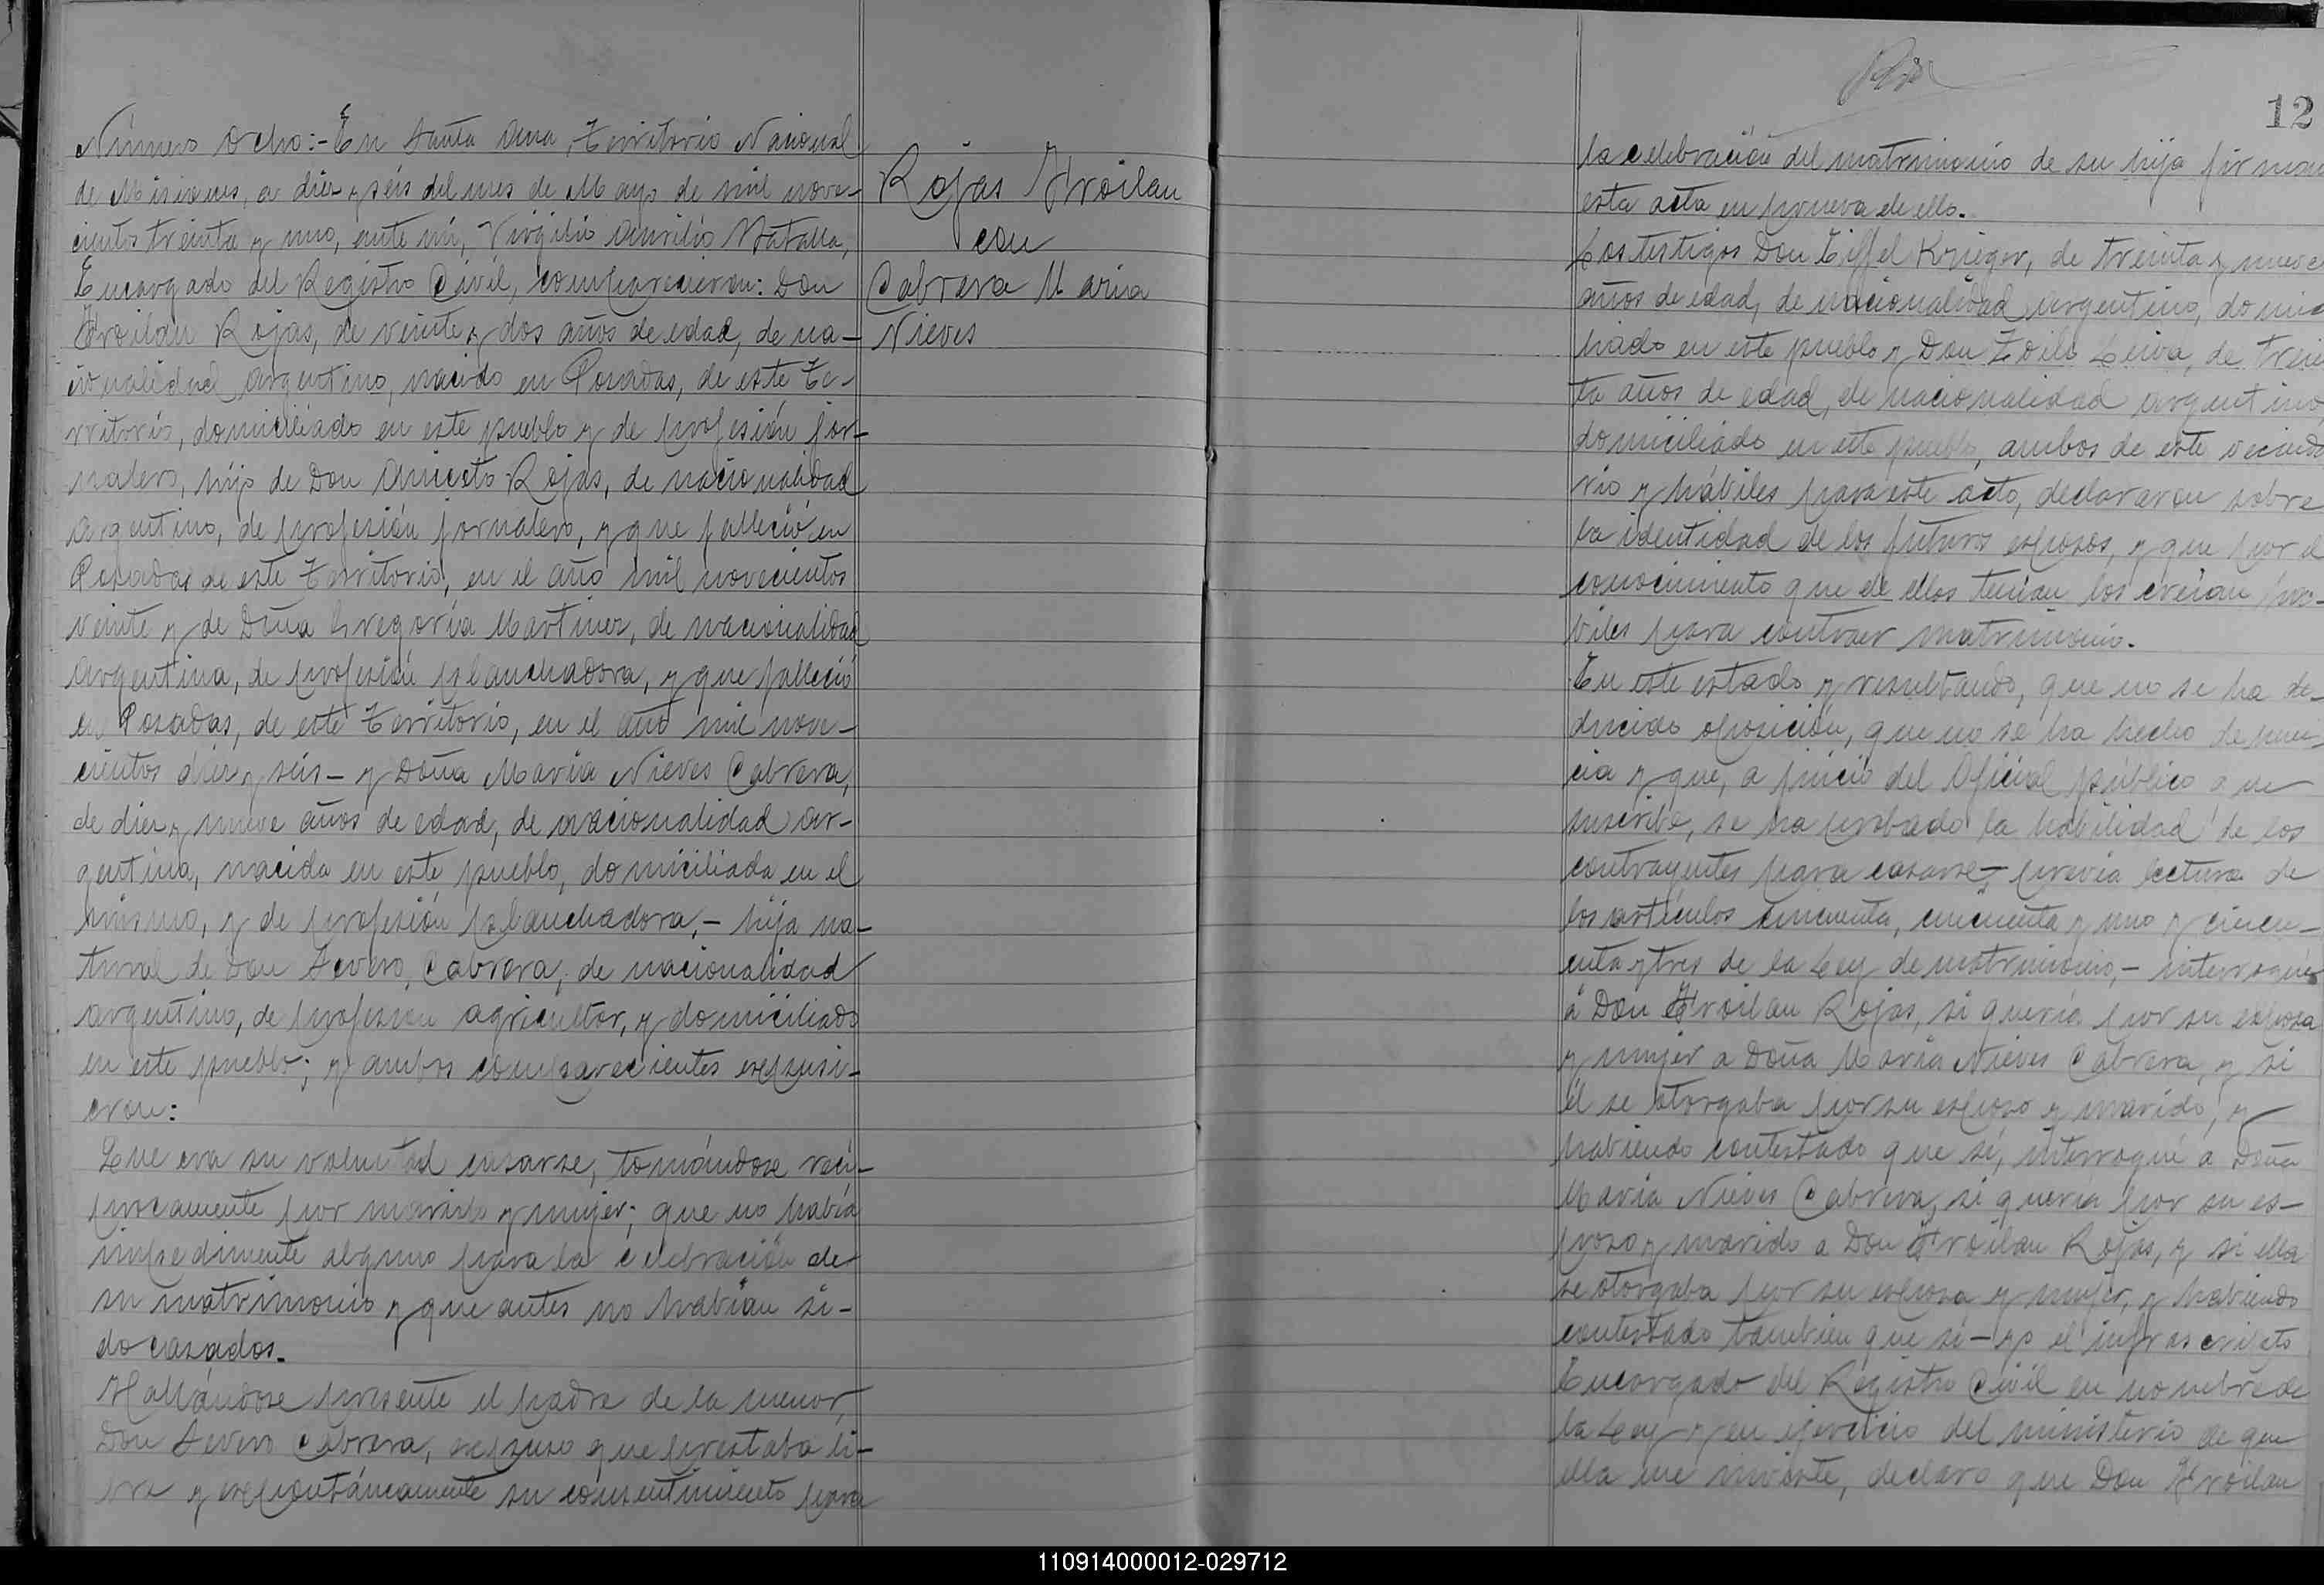 Número Ocho:- En Santa Ana, Territorio Nacional
de Misiones, a diez y séis del mes de Mayo de mil nove-
cientos treinta y uno, ante mí, Virgilio Aurilio Matalla,
Encargado del Registro Civil, comparecieron: Don
Froilan Rojas, de veinte y dos años de edad, de na-
cionalidad argentino, nacido en Posadas, de este Te-
rritorio, domiciliado en este pueblo y de profesión jor-
nalero, hijo de Don Aniceto Rojas, de nacionalidad
argentino, de profesión jornalero, y que falleció en
Posadas de este Territorio, en el año mil novecientos
veinte y de Doña Gregoria Martinez, de nacionalidad
argentina, de profesión planchadora, y que falleció
en Posadas, de este Territorio, en el año mil nove-
cientos diez y séis- y Doña María Nieves Cabrera,
de diez y nueve años de edad, de nacionalidad ar-
gentina, nacida en este pueblo, domiciliada en el
mismo, y de profesión planchadora,- hija na-
tural de Don Severo Cabrera, de nacionalidad
argentino, de profesión agricultor, y domiciliado
en este pueblo; y ambos comparecientes expusi-
eron:
Que era su voluntad casarse, tomándose recí-
procamente por marido y mujer; que no había
impedimente alguno para la celebración de
su matrimonio y que antes no habían si-
do casados.
Hallándose presente el padre de la menor,
Don Severo Cabrera, expuso que prestaba li-
bre y expontáneamente su consentimiento para
Rojas Froilan
con
Cabrera Maria
Nieves
12
la celebración del matrimonio de su hija firman
esta acta en prueva de ello.
Los testigos Don Eiffel Krieger, de treinta y nueve
años de edad, de nacionalidad argentino, domici
liado en este pueblo y Don Zoilo Leiva, de trein
ta años de edad, de nacionalidad argentino
domiciliado en este pueblo, ambos de este vecinda
rio y hábiles para este acto, declararon sobre
la identidad de los futuros esposos, y que por el
conocimiento que de ellos tenían los creían há-
biles para contraer matrimonio.
En este estado y resultando, que no se ha de-
ducido oposición, que no se ha hecho denun-
cia y que, a juicio del Oficial público que
suscribe, se ha probado la habilidad de los
contrayentes para casarse,- previa lectura de
los artículos cincuenta, cincuenta y uno y cincu-
enta y tres de la Ley de matrimonio,- interrogué
á Don Froilan Rojas, si quería por su esposa
y mujer a Doña María Nieves Cabrera, y si
él se otorgaba por su esposo y marido, y
habiendo contestado que sí, interrogué á Doña
María Nieves Cabrera, si quería por su es-
poso y marido a Don Froilan Rojas, y si ella
se otorgaba por su esposa y mujer, y habiendo
contestado también que sí- yo el infrascripto
Encargado del Registro Civil en nombre de
la Ley y en ejercicio del ministerio de que
ella me inviste, declaro que Don Froilan
110914000012-029712